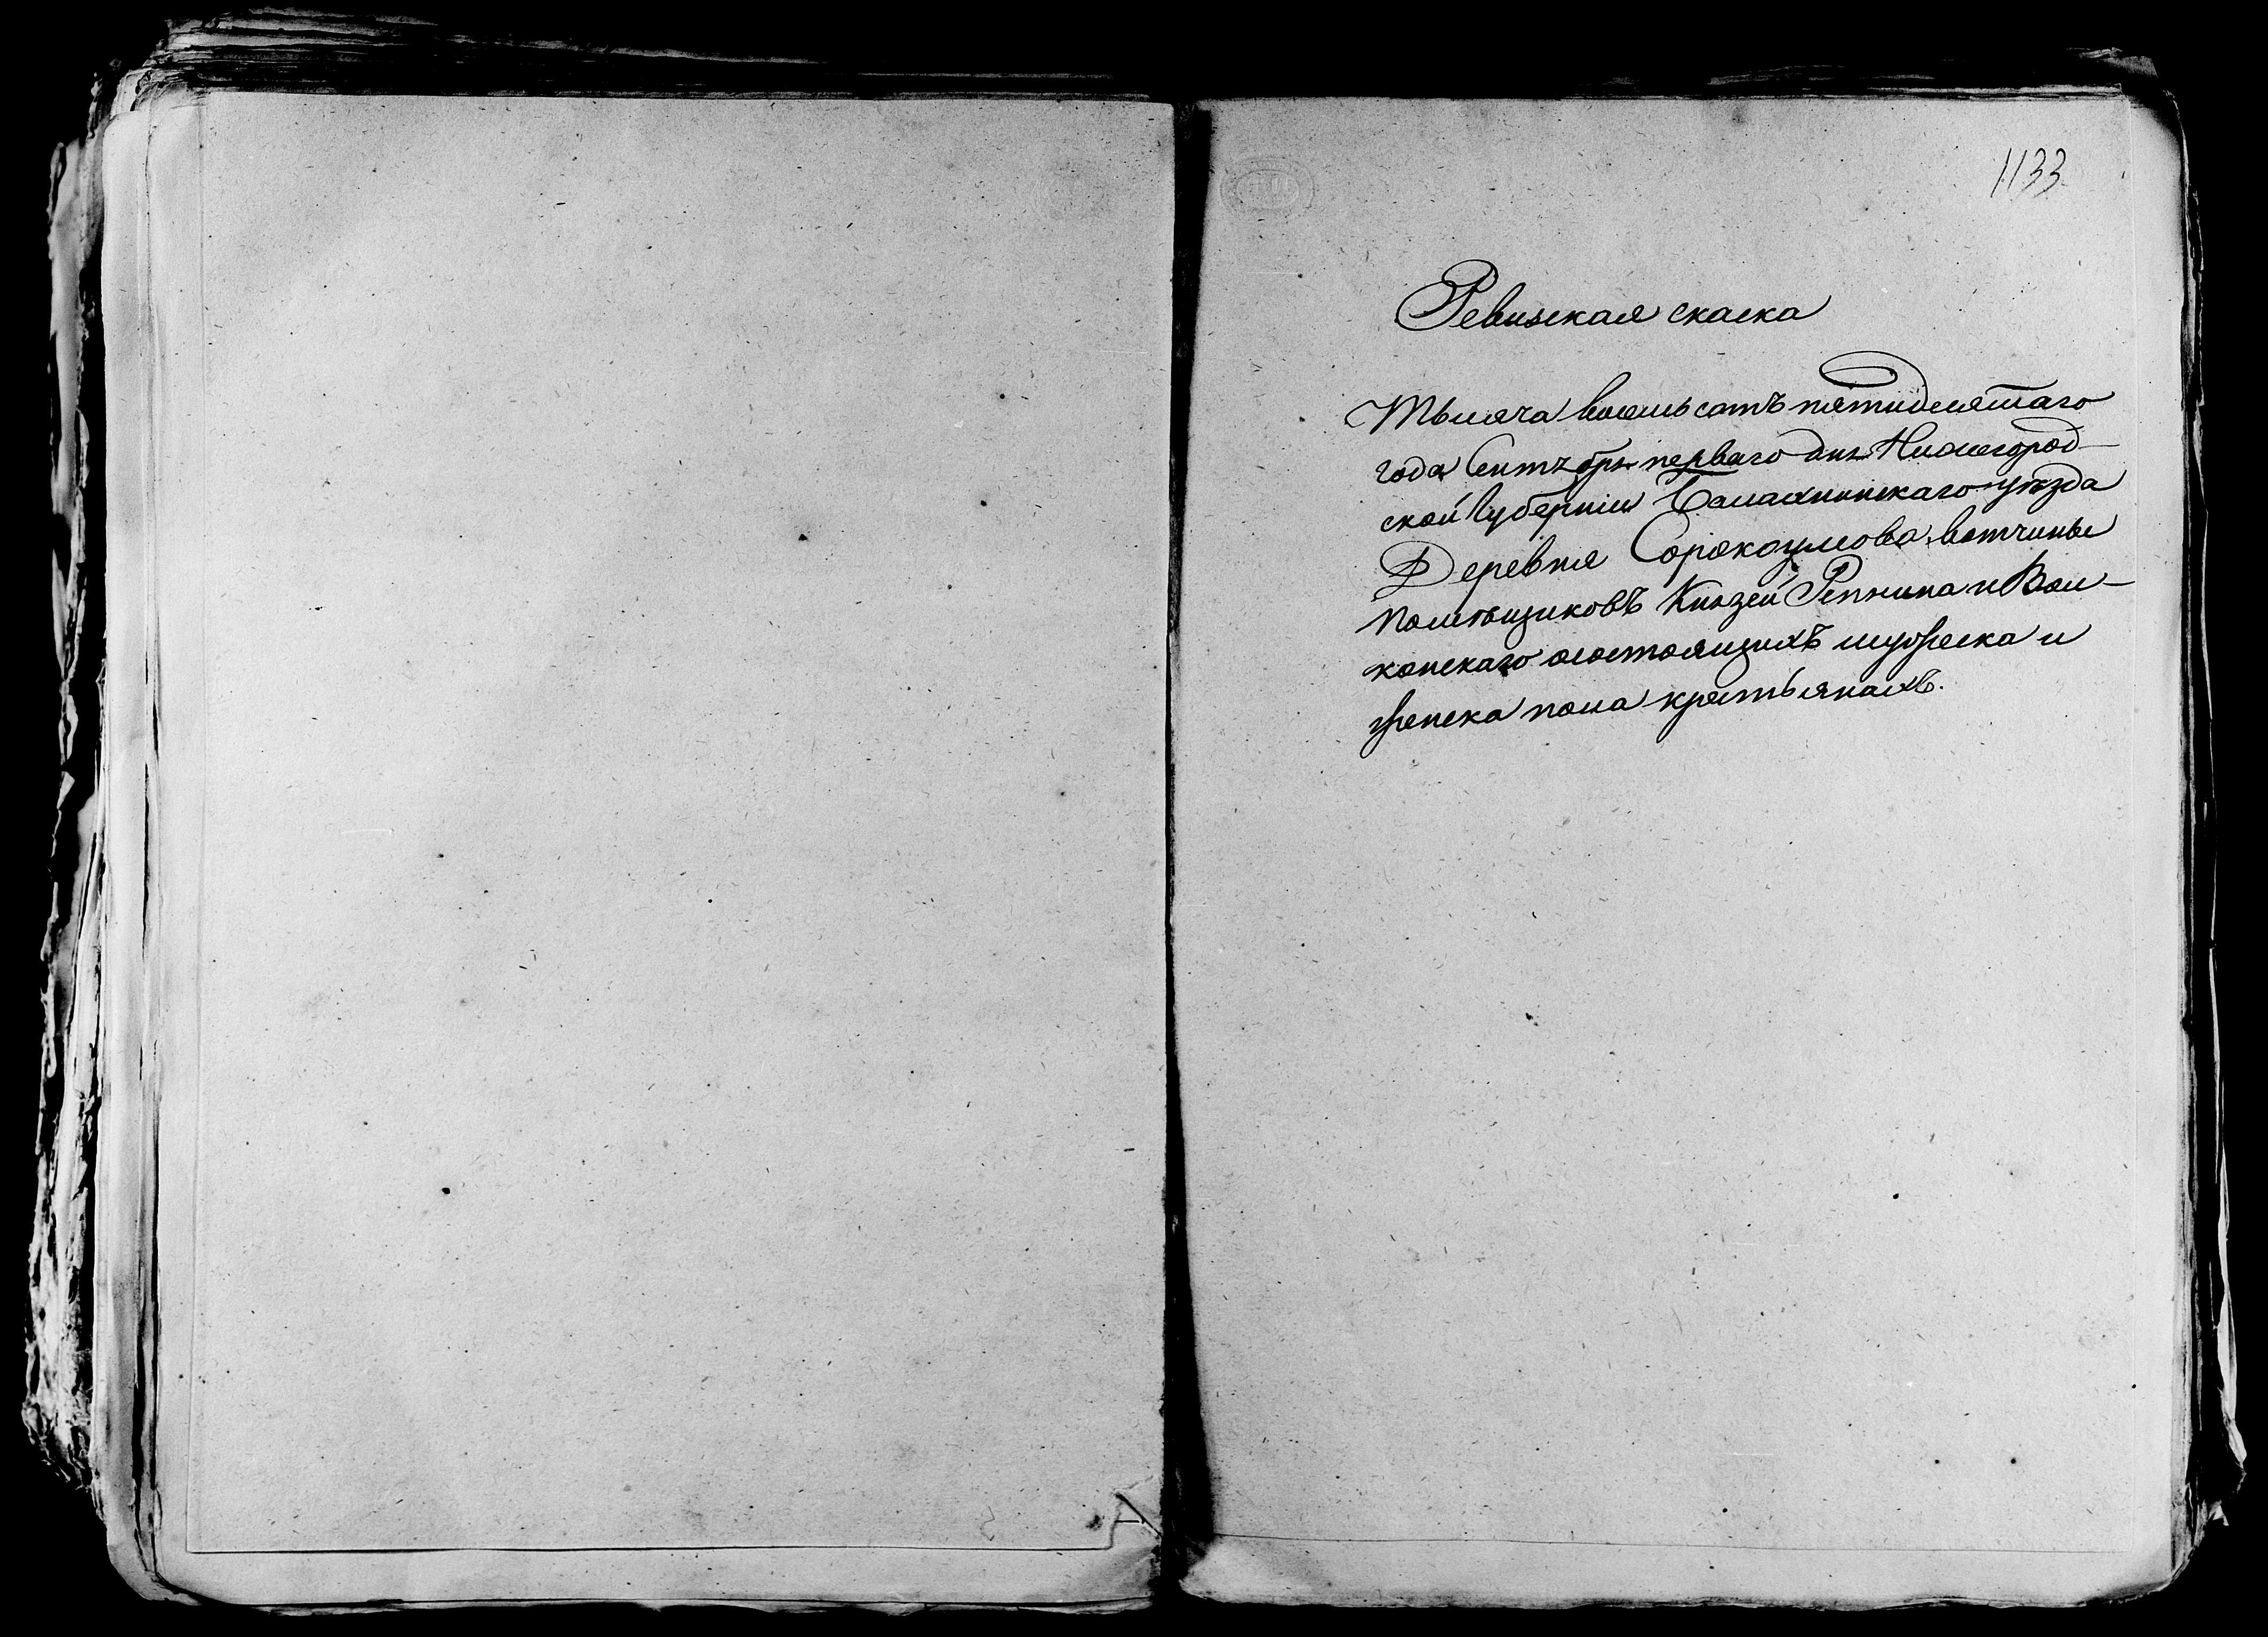 1133
Ревизская скаска
Тысяча восемь сотъ пятидесятаго
года Сентебря перваго дня Нижегород-
ской Губерніи Балахнинскаго уѣзда
Деревня Сорокоумова вотчины
помѣщиковъ Князей Репнина и Вол-
конскаго осостоящихъ мужеска и
женска пола крестьянахъ.